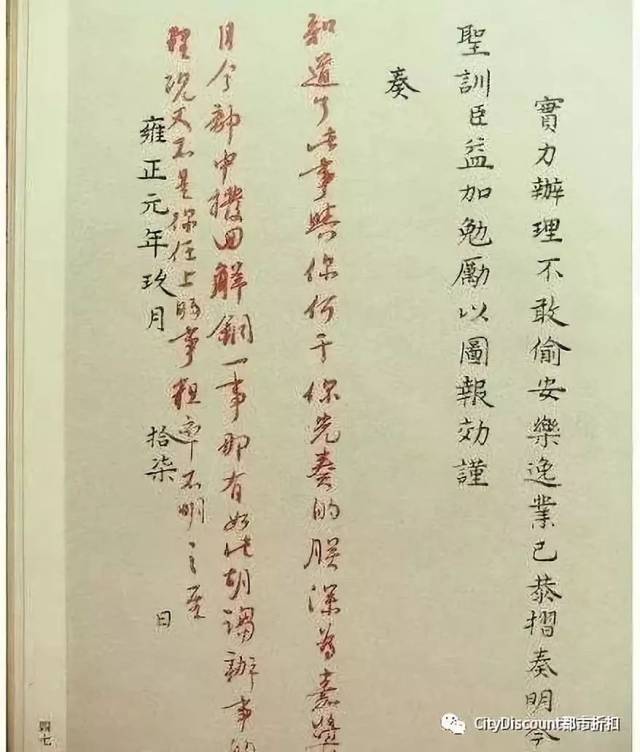 實力辦理不敢偷安樂逸業已恭摺奏明今
聖訓臣益加勉勵以圖報効謹
奏
知道了此事與你何干你先奏的朕深為嘉獎
目今部中撥回解銅一事那有如此胡謅辦事的
理況又不是你任上的事粗率不明之至
雍正元年玖月拾柒日
四七
CityDiscount都市折扣